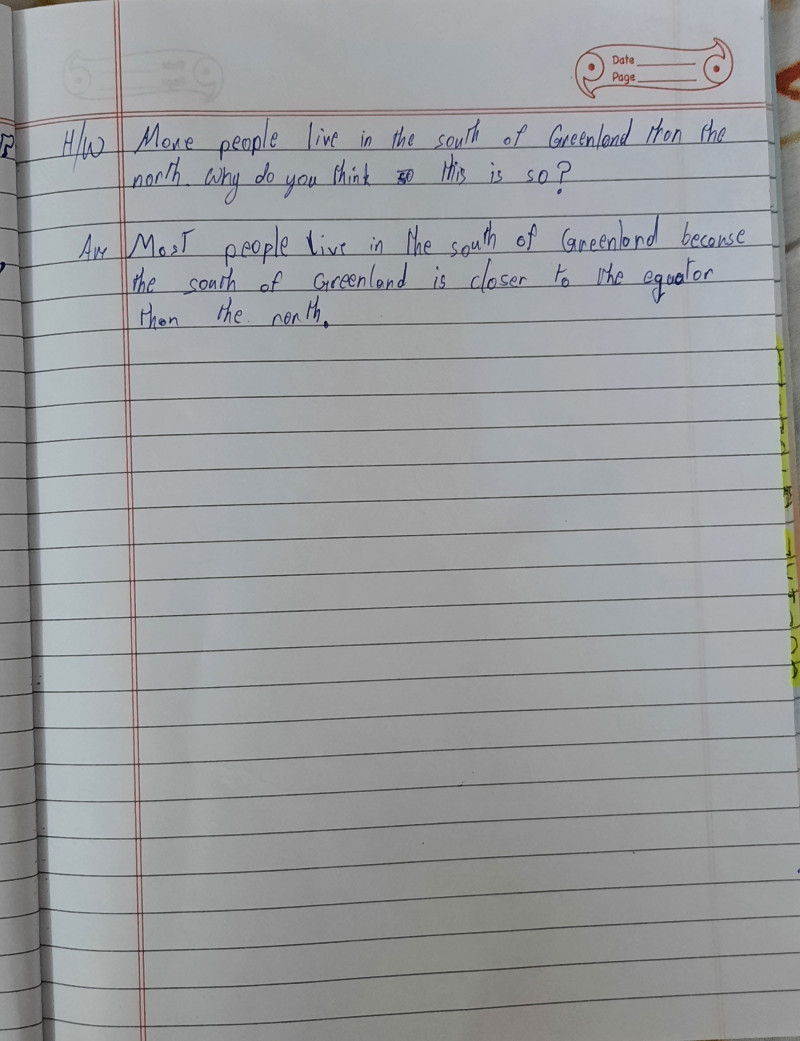 Date
Page
H/W More people live in the south of Greenland than the
north. Why do you think so this is so?
Ans Most people live in the south of Greenland because
the south of Greenland is closer to the equator
than the north.